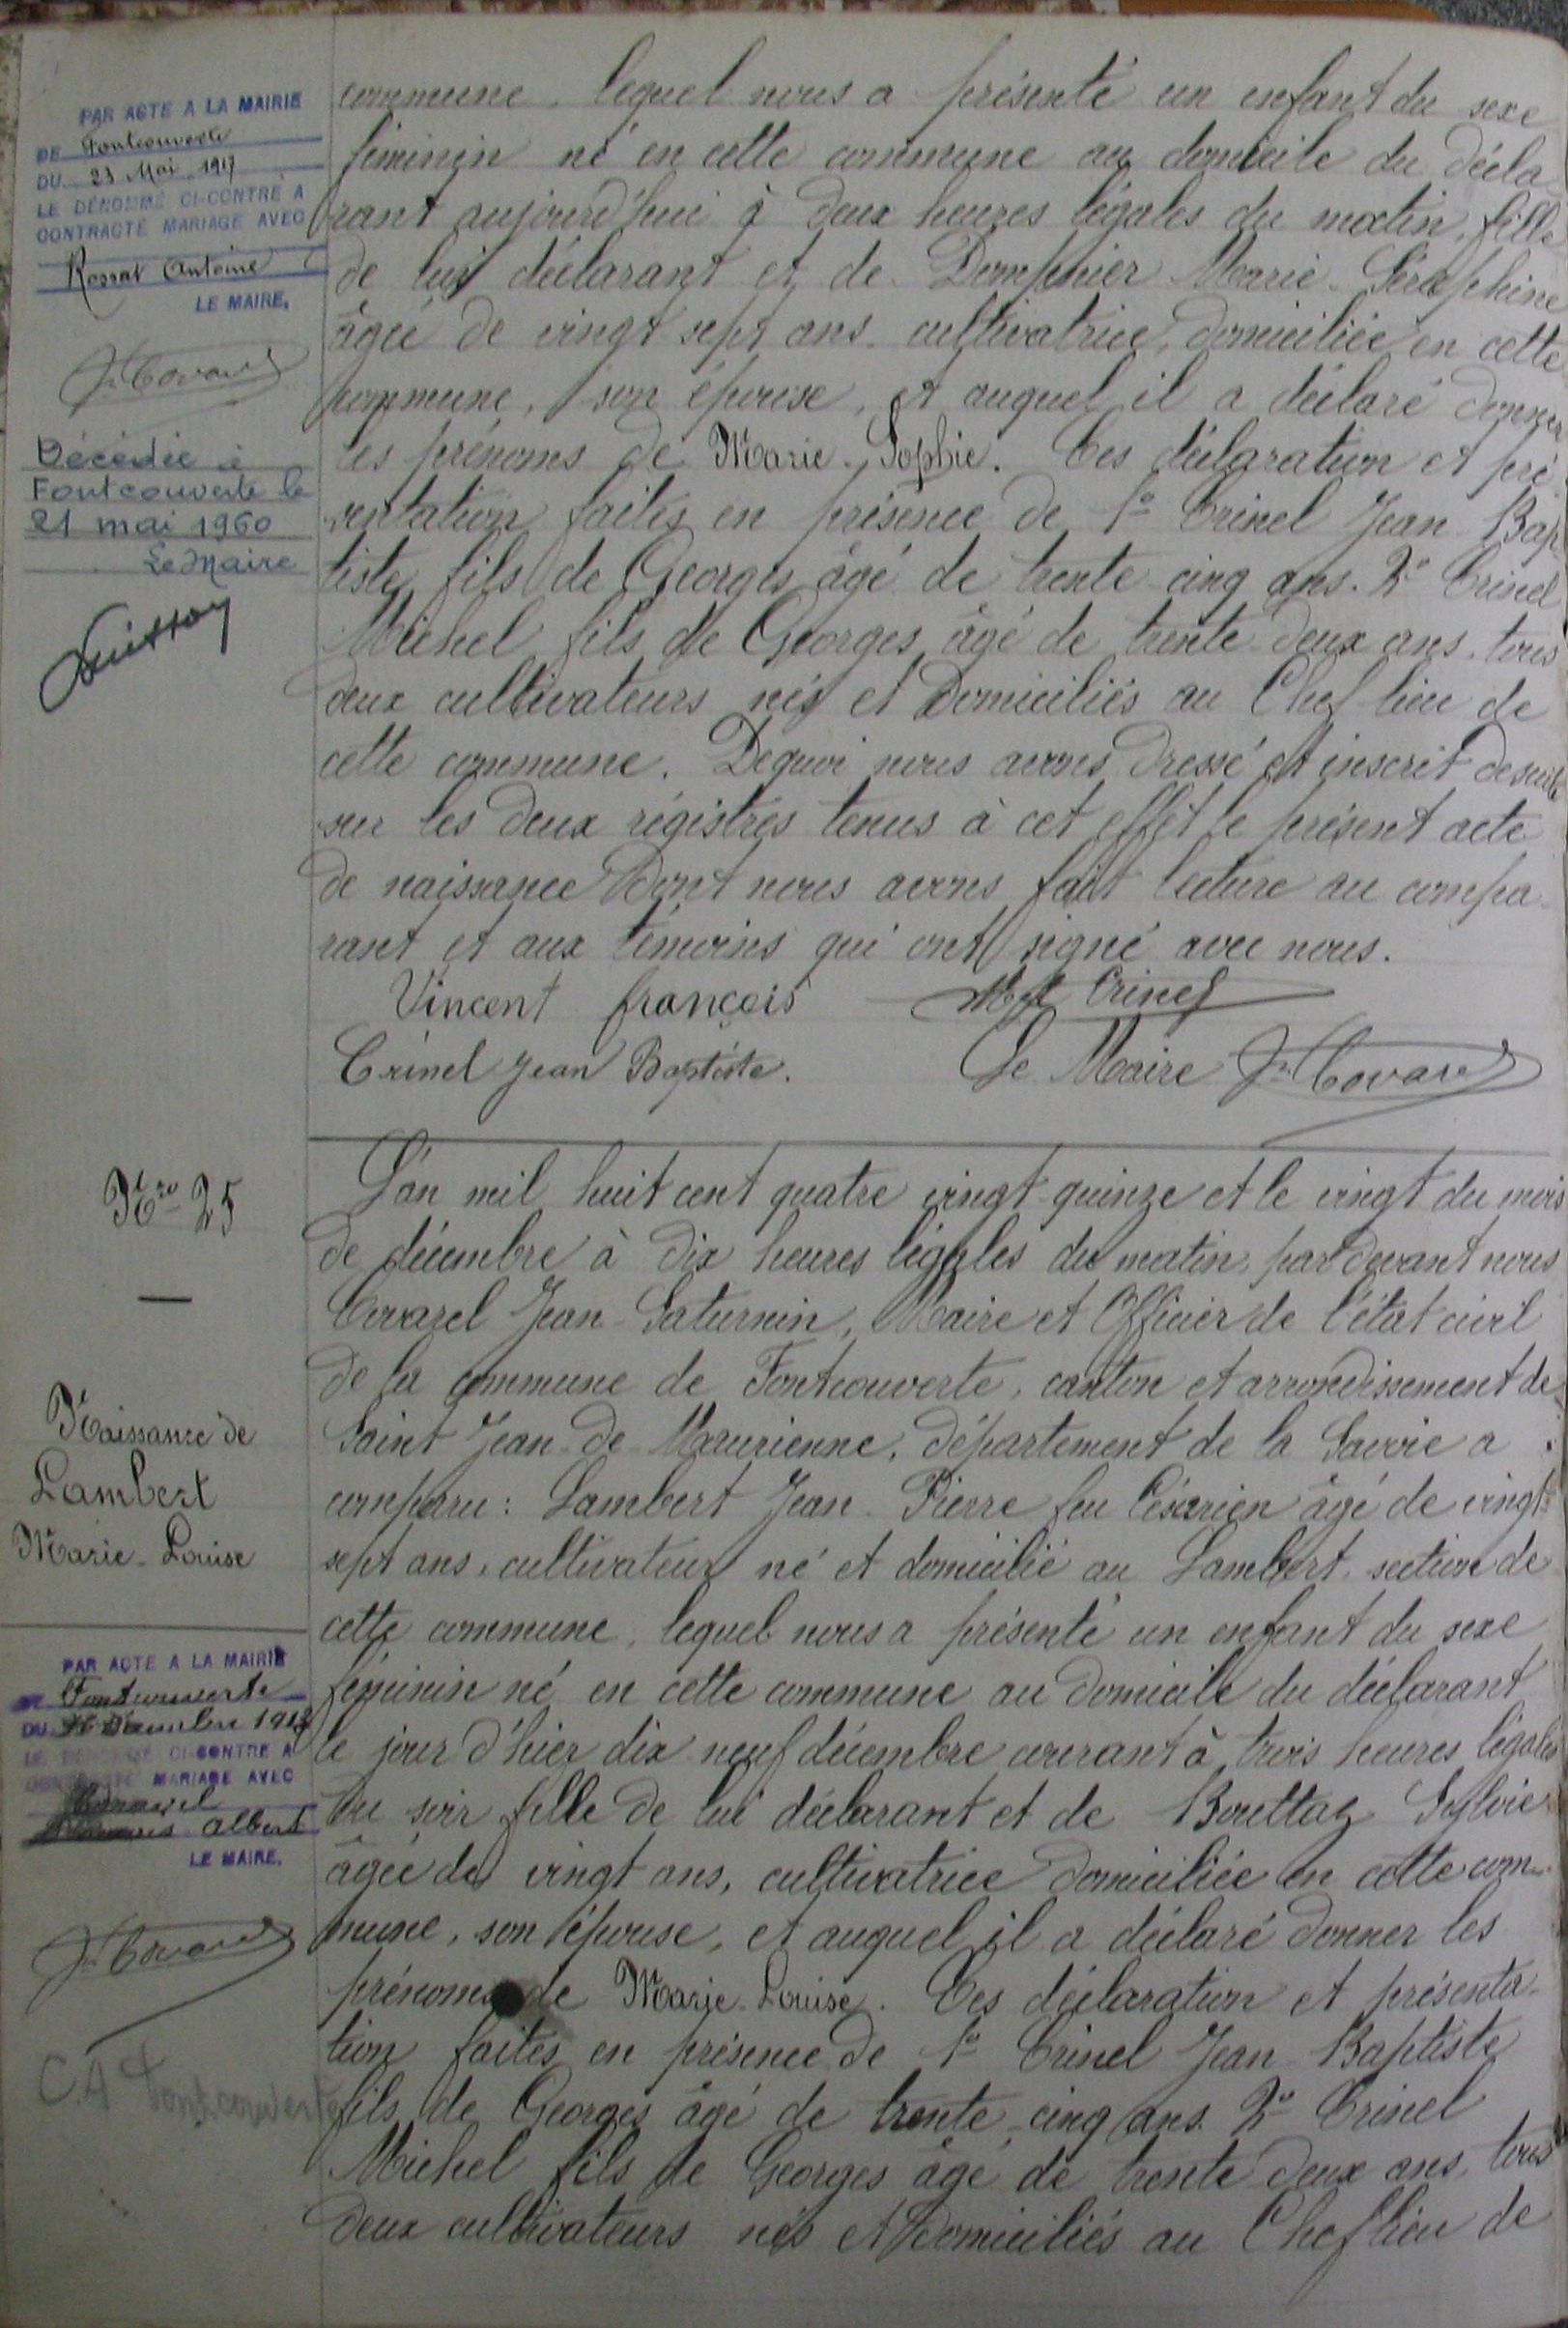 PAR ACTE A LA MAIRIE
DE Fontcouverte
DU 23 Mai 1917
LE DÉNOMMÉ CI-CONTRE A
CONTRACTÉ MARIAGE AVEC
Rossat Antoine
LE MAIRE,
Décédée à
Fontcouverte le
21 mai 1960
Le Maire
commune, lequel nous a présenté un enfant du sexe
féminin né en cette commune au domicile du décla
rant aujourd'hui à deux heures légales du matin, fille
de lui déclarant et de Dompnier Marie-Séraphine
âgée de vingt sept ans cultivatrice, domiciliée en cette
commune, son épouse, et auquel il a déclaré donner
les prénoms de Marie-Sophie. Ces déclaration et pré
sentation faites en présence de 1° Crinel Jean Bap
tiste fils de Georges âgé de trente cinq ans. 2° Crinel
Michel fils de Georges âgé de trente-deux ans, tous
deux cultivateurs nés et domiciliés au Chef lieu de
cette commune. De quoi nous avons dressé et inscrit de suite
sur les deux régistres tenus à cet effet le présent acte
de naissance dont nous avons fait lecture au compa-
rant et aux témoins qui ont signé avec nous.
Vincent françois Crinel
Crinel Jean Baptiste. Le Maire Jn Covarel
Nro 25
Naissance de
Lambert
Marie-Louise
PAR ACTE A LA MAIRIE
DE Fontcouverte
DU Décembre 1918
LE DÉNOMMÉ CI-CONTRE A
CONTRACTÉ MARIAGE AVEC
albert
LE MAIRE,
Jn Covarel
C.A 4 Fontcouverte
L'an mil huit cent quatre vingt-quinze et le vingt du mois
de décembre à dix heures légales du matin, par devant nous
Covarel Jean-Saturnin, Maire et Officier de l'état civil
de la commune de Fontcouverte, canton et arrondissement de
Saint Jean-de-Maurienne, département de la Savoie a
comparu : Lambert Jean-Pierre feu Césarien âgé de vingt-
sept ans, cultivateur né et domicilié au Lambert, section de
cette commune, lequel nous a présenté un enfant du sexe
féminin né en cette commune au domicile du déclarant
le jour d'hier dix neuf décembre courant à trois heures légales
du soir fille de lui déclarant et de Bouttaz Sylvie
âgée de vingt ans, cultivatrice domiciliée en cette com-
mune, son épouse, et auquel il a déclaré donner les
prénoms de Marie-Louise. Ces déclaration et présenta-
tion faites en présence de 1° Crinel Jean-Baptiste
fils de Georges âgé de trente-cinq ans. 2° Crinel
Michel fils de Georges âgé de trente-deux ans, tous
deux cultivateurs nés et domiciliés au Chef lieu de